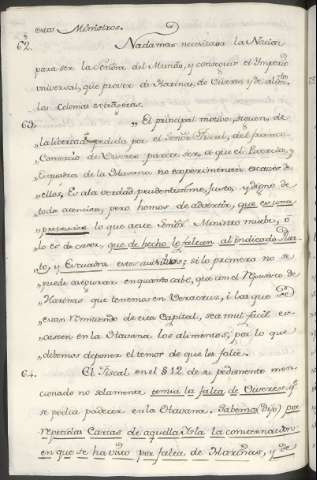 estos Ministros.
62. Nada mas necesitara la Nacion
para ser la Señora del Mundo, y conseguir el Imperio
universal, que proveer de Harinas, de Viveres y de
las colonias extrangeras.
63. „El principal motivo,
„la libertad por el Señor Fiscal, del franco
„Comercio de Viveres parece ser, a que el Exercito, y
„Esquadra de la Havana no experimenten escasez de
„ellos. Es a la verdad prudentisimo, justo, y digno de
„toda atencion; pero hemos de advertir, que es una
„presuncion lo que aqui Señor Ministro mueve, ó
„lo es de creer, que de hecho le falten al indicado
„y Escuadra estos auxilios; si lo primero no se
„puede asegurar en quanto cabe, que con el Repuesto de
„Harinas que tenemos en Veracruz, i las que se
„estan remitiendo de esta Capital, sea mui facil
„en la Havana los alimentos; por lo que
„debemos deponer el temor de que les falte.
64. El Fiscal en el § 12 de su pedimento men-
cionado no solamente temia la falta de Viveres q.e
se podia padecer en la Havana. Sabemos (Dijo) por
repetidas Cartas de aquella Isla la consternacion
en que se ha visto por falta de Harinas, y de